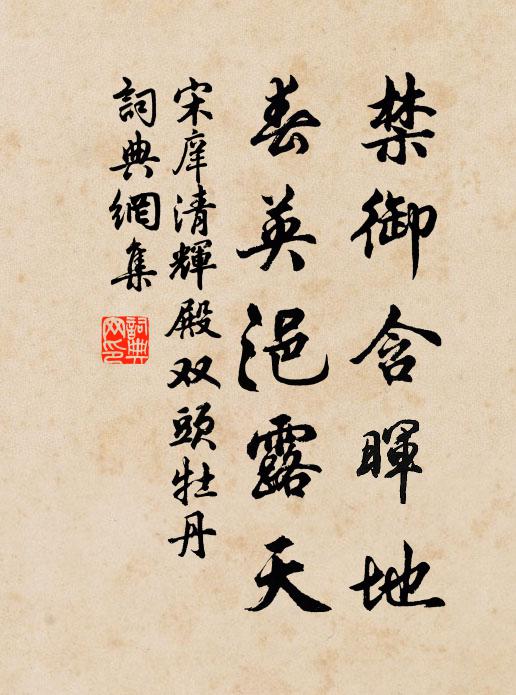 禁御含暉地
春英浥露天
宋庠清輝殿双頭牡丹
詞典網集
詞典网印